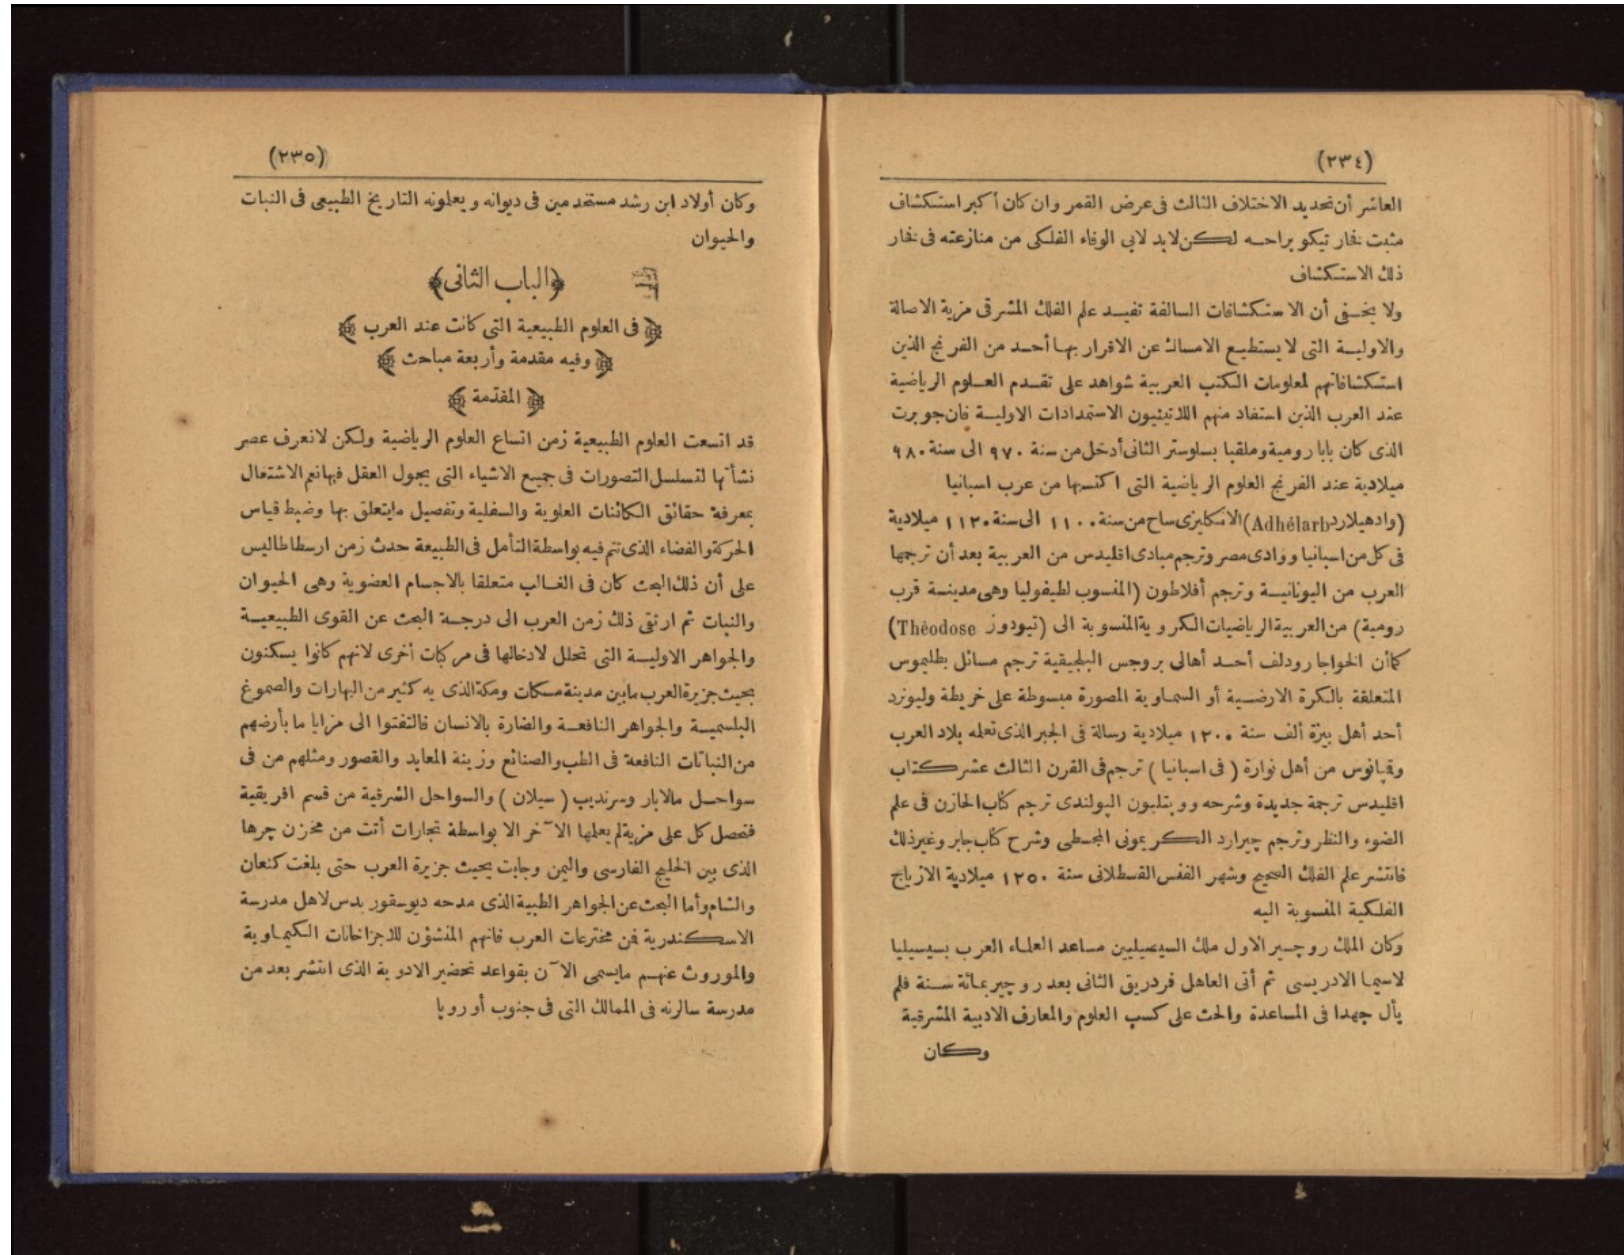 (٢٣٤)
العاشر أن تحديد الاختلاف الثالث فى عرض القمر وان كان أكبر استكشاف
مثبت فخار تيكو براحه لكن لابد لابى الوفاء الفلكى من منازعته فى فخار
ذلك الاستكشاف
ولا يخفى أن الاستكشافات السالفة تفيد علم الفلك المشرقى مزية الاصالة
والاولية التى لا يستطيع الامساك عن الاقرار بها أحد من الفرنج الذين
استكشافاتهم لمعلومات الكتب العربية شواهد على تقدم العلوم الرياضية
عند العرب الذين استفاد منهم اللاتينيون الاستمدادات الاولية فان جوبرت
الذى كان بابا رومية وملقبا بسلوستر الثانى أدخل من سنة ٩٧٠ الى سنة ٩٨٠
ميلادية عند الفرنج العلوم الرياضية التى اكتسبها من عرب اسبانيا
(وادهيلارد Adhélarb) الانكليزى ساح من سنة ١١٠٠ الى سنة ١١٢٠ ميلادية
فى كل من اسبانيا ووادى مصر وترجم مبادى اقليدس من العربية بعد أن ترجمها
العرب من اليونانية وترجم أفلاطون (المنسوب لطيفوليا وهى مدينة قرب
رومية) من العربية الرياضيات الكروية المنسوبة الى (تيودوز Théodose)
كما أن الخواجا رودلف أحد أهالى بروجس البلجيقية ترجم مسائل بطليموس
المتعلقة بالكرة الارضية أو السماوية المصورة مبسوطة على خريطة وليونرد
أحد أهل بيزة ألف سنة ١٢٠٠ ميلادية رسالة فى الجبر الذى تعلمه ببلاد العرب
وقپانوس من أهل نوارة (فى اسبانيا) ترجم فى القرن الثالث عشر كتاب
اقليدس ترجمة جديدة وشرحه وويتليون الپولندى ترجم كتاب الخازن فى علم
الضوء والنظر وترجم چيرارد الكريمونى المجسطى وشرح كتاب جابر وغير ذلك
فانتشر علم الفلك الصحيح وشهر الفنس القسطلانى سنة ١٢٥٠ ميلادية الازياج
الفلكية المنسوبة اليه
وكان الملك روچير الاول ملك السيصيليين مساعد العلماء العرب بسيسيليا
لاسيما الادريسى ثم أتى العاهل فردريق الثانى بعد روچير بمائة سنة فلم
يأل جهدا فى المساعدة والحث على كسب العلوم والمعارف الادبية المشرقية
وكان
(٢٣٥)
وكان أولاد ابن رشد مستخدمين فى ديوانه ويعلمونه التاريخ الطبيعى فى النبات
والحيوان
﴿الباب الثانى﴾
﴿فى العلوم الطبيعية التى كانت عند العرب﴾
﴿وفيه مقدمة وأربعة مباحث﴾
﴿المقدّمة﴾
قد اتسعت العلوم الطبيعية زمن اتساع العلوم الرياضية ولكن لا نعرف عصر
نشأتها لتسلسل التصورات فى جميع الاشياء التى يجول العقل فيها نعم الاشتغال
بمعرفة حقائق الكائنات العلوية والسفلية وتفصيل ما يتعلق بها وضبط قياس
الحركة والفضاء الذى تتم فيه بواسطة التأمل فى الطبيعة حدث زمن ارسطاطاليس
على أن ذلك البحث كان فى الغالب متعلقا بالاجسام العضوية وهى الحيوان
والنبات ثم ارتقى ذلك زمن العرب الى درجة البحث عن القوى الطبيعية
والجواهر الاولية التى تحلل لادخالها فى مركبات أخرى لانهم كانوا يسكنون
بحيث جزيرة العرب مابين مدينة مسكات ومكة الذى به كثير من البهارات والصموغ
البلسمية والجواهر النافعة والضارة بالانسان فالتفتوا الى مزايا ما بأرضهم
من النباتات النافعة فى الطب والصنائع وزينة المعابد والقصور ومثلهم من فى
سواحل مالابار وسرنديب (سيلان) والسواحل الشرقية من قسم افريقية
فتحصل كل على مزية لم يعلمها الآخر الا بواسطة تجارات أتت من مخزن چرها
الذى بين الخليج الفارسى واليمن وجابت بحيث جزيرة العرب حتى بلغت كنعان
والشام وأما البحث عن الجواهر الطبية الذى مدحه ديوسقور يدس لاهل مدرسة
الاسكندرية فمن مخترعات العرب فانهم المنشؤن للاجزاخانات الكيماوية
والموروث عنهم مايسمى الآن بقواعد تحضير الادوية الذى انتشر بعد من
مدرسة سالرنه فى الممالك التى فى جنوب أوروپا